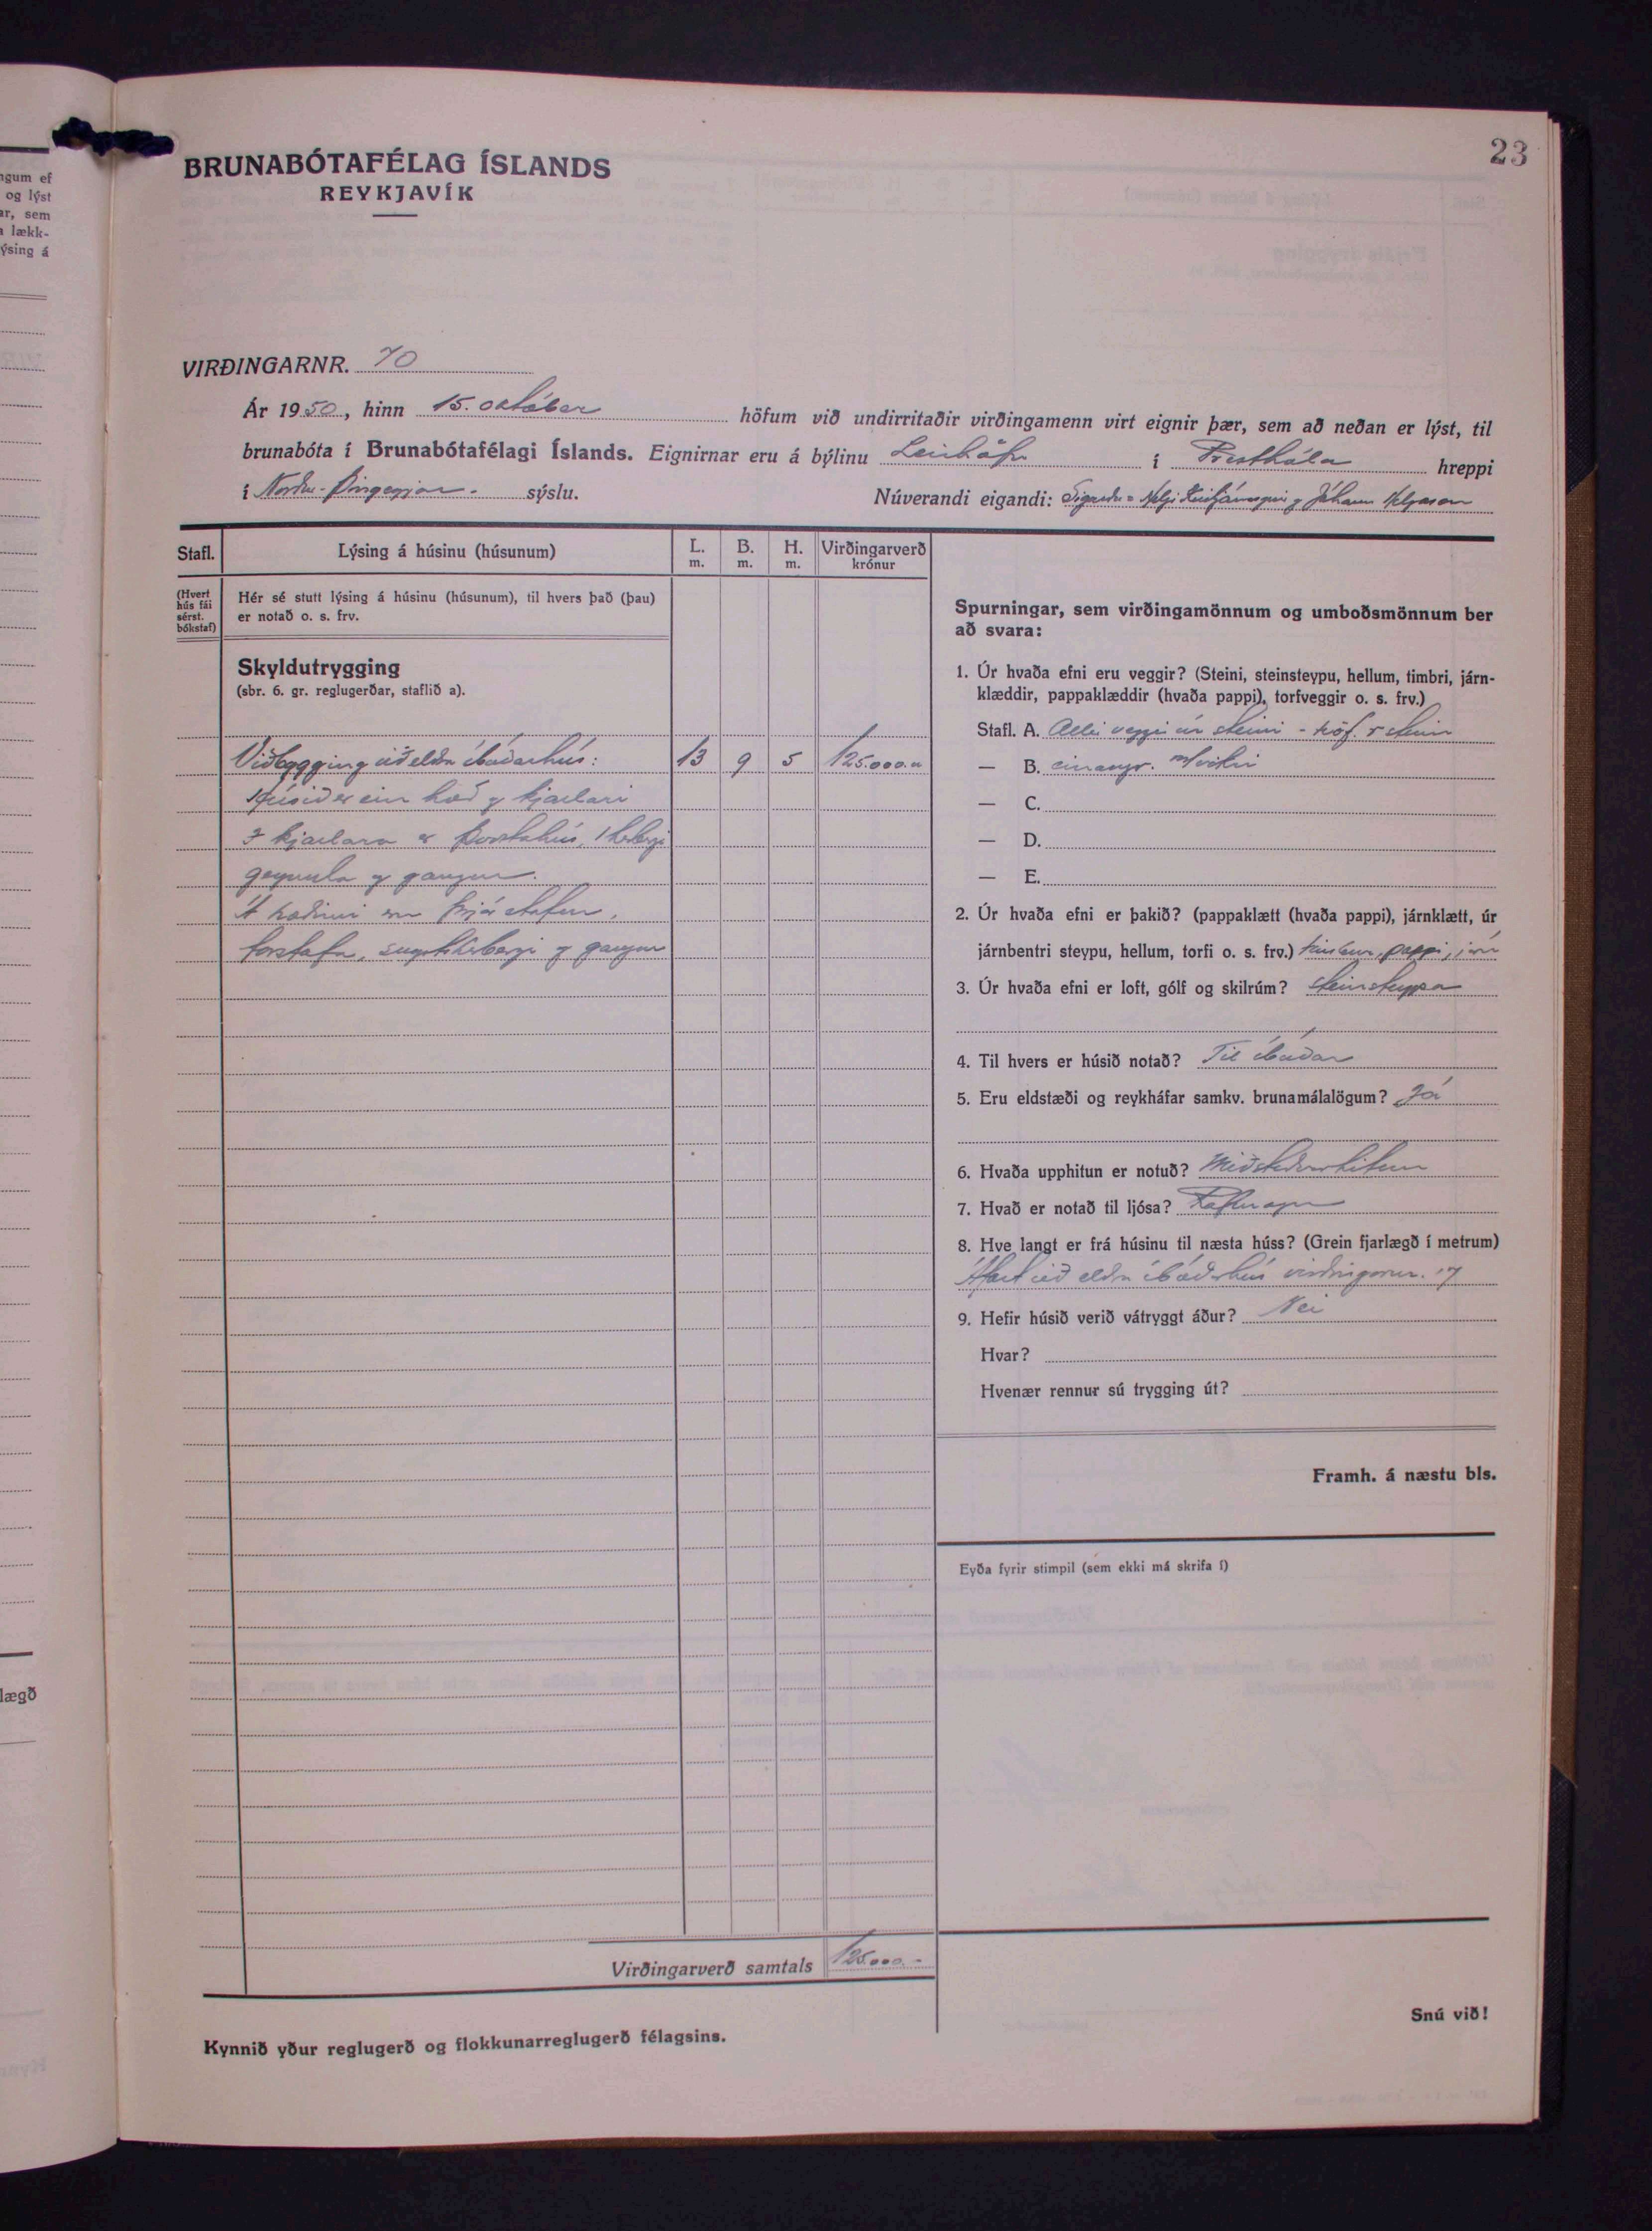 ngum ef
og lýst
ar, sem
a lækk-
ýsing á
lægð
23
BRUNABÓTAFÉLAG ÍSLANDS
REYKJAVÍK
VIRÐINGARNR. 70
Ár 1950, hinn 15. október höfum við undirritaðir virðingamenn virt eignir þær, sem að neðan er lýst, til
brunabóta í Brunabótafélagi Íslands. Eignirnar eru á býlinu Leirhöfn í Presthóla hreppi
í Norður-Þingeyjar- sýslu. Núverandi eigandi: Sigurður Helgi Kristjánssynir og Jóhann Helgason
Stafl.
Lýsing á húsinu (húsunum)
L. m.
B. m.
H. m.
Virðingarverð krónur
(Hvert hús fái sérst. bókstaf)
Hér sé stutt lýsing á húsinu (húsunum), til hvers það (þau)
er notað o. s. frv.
Skyldutrygging
(sbr. 6. gr. reglugerðar, staflið a).
Viðbygging við eldra íbúðarhús: 13 9 5 125.000.
Húsið er ein hæð og kjallari
Í kjallara er þvottahús, 1 herbergi
geymsla og gangur.
Á hæðinni eru þrjár stofur,
forstofa, svefnherbergi og gangur
Virðingarverð samtals 125.000.-
Kynnið yður reglugerð og flokkunarreglugerð félagsins.
Spurningar, sem virðingamönnum og umboðsmönnum ber
að svara:
1. Úr hvaða efni eru veggir? (Steini, steinsteypu, hellum, timbri, járn-
klæddir, pappaklæddir (hvaða pappi), torfveggir o. s. frv.)
Stafl. A. Allir veggir úr steini - steinn
— B. einangr.
— C.
— D.
— E.
2. Úr hvaða efni er þakið? (pappaklætt (hvaða pappi), járnklætt, úr
járnbentri steypu, hellum, torfi o. s. frv.) timbur, pappi, járn
3. Úr hvaða efni er loft, gólf og skilrúm? steinsteypa
4. Til hvers er húsið notað? Til íbúðar
5. Eru eldstæði og reykháfar samkv. brunamálalögum? Já
6. Hvaða upphitun er notuð? Miðstöðvarhitun
7. Hvað er notað til ljósa? Rafmagn
8. Hve langt er frá húsinu til næsta húss? (Grein fjarlægð í metrum)
Áfast við eldra íbúðarhús virðingarnr. 17
9. Hefir húsið verið vátryggt áður? Nei
Hvar?
Hvenær rennur sú trygging út?
Framh. á næstu bls.
Eyða fyrir stimpil (sem ekki má skrifa í)
Snú við!